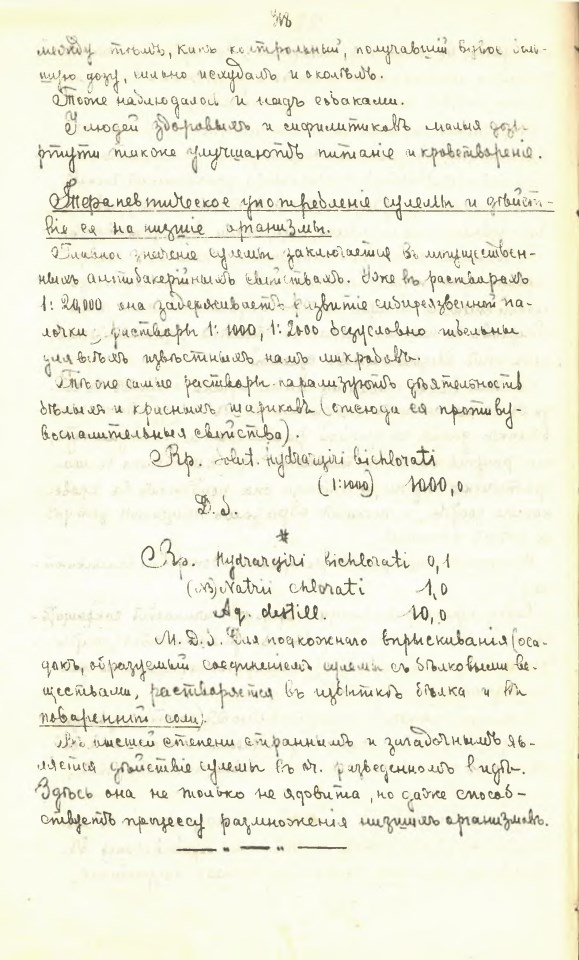 318
между тѣмъ, какъ контрольный, получавшій боль-
шую дозу, сильно исхудалъ и околѣлъ.
Тоже наблюдалось и надъ собаками.
У людей здоровыхъ и сифилитиковъ малыя дозы
ртути также улучшаютъ питаніе и кровотвореніе.
Терапевтическое употребленіе сулемы и дѣйст-
віе ея на низшіе организмы.
Главное значеніе сулемы заключается въ могуществен-
ныхъ антибакерійныхъ свойствахъ. Уже въ растворахъ
1:20,000 она задерживаетъ развитіе сибиреязвенной па-
лочки, растворы 1:1000, 1:2000 безусловно гибельны
для всѣхъ извѣстныхъ намъ микробовъ.
Тѣ же самые растворы парализуютъ дѣятельность
бѣлыхъ и красныхъ шариковъ (отсюда ея противу-
воспалительныя свойства).
Rp. Solut. Hydrargiri bichlorati
(1:1000) 1000,0
D. S.
#
Rp. Hydrargiri bichlorati 0,1
(N3) Natrii chlorati 1,0
Aq. destill. 10,0
M. D. S. Для подкожнаго впрыскиванія (оса-
докъ, образуемый соединеніемъ сулемы съ бѣлковыми ве-
ществами, растворяется въ избыткѣ бѣлка и въ
поваренной соли).
Въ высшей степени страннымъ и загадочнымъ яв-
ляется дѣйствіе сулемы въ оч. разведенномъ видѣ.
Здѣсь она не только не ядовита, но даже способ-
ствуетъ процессу размноженія низшихъ организмовъ.